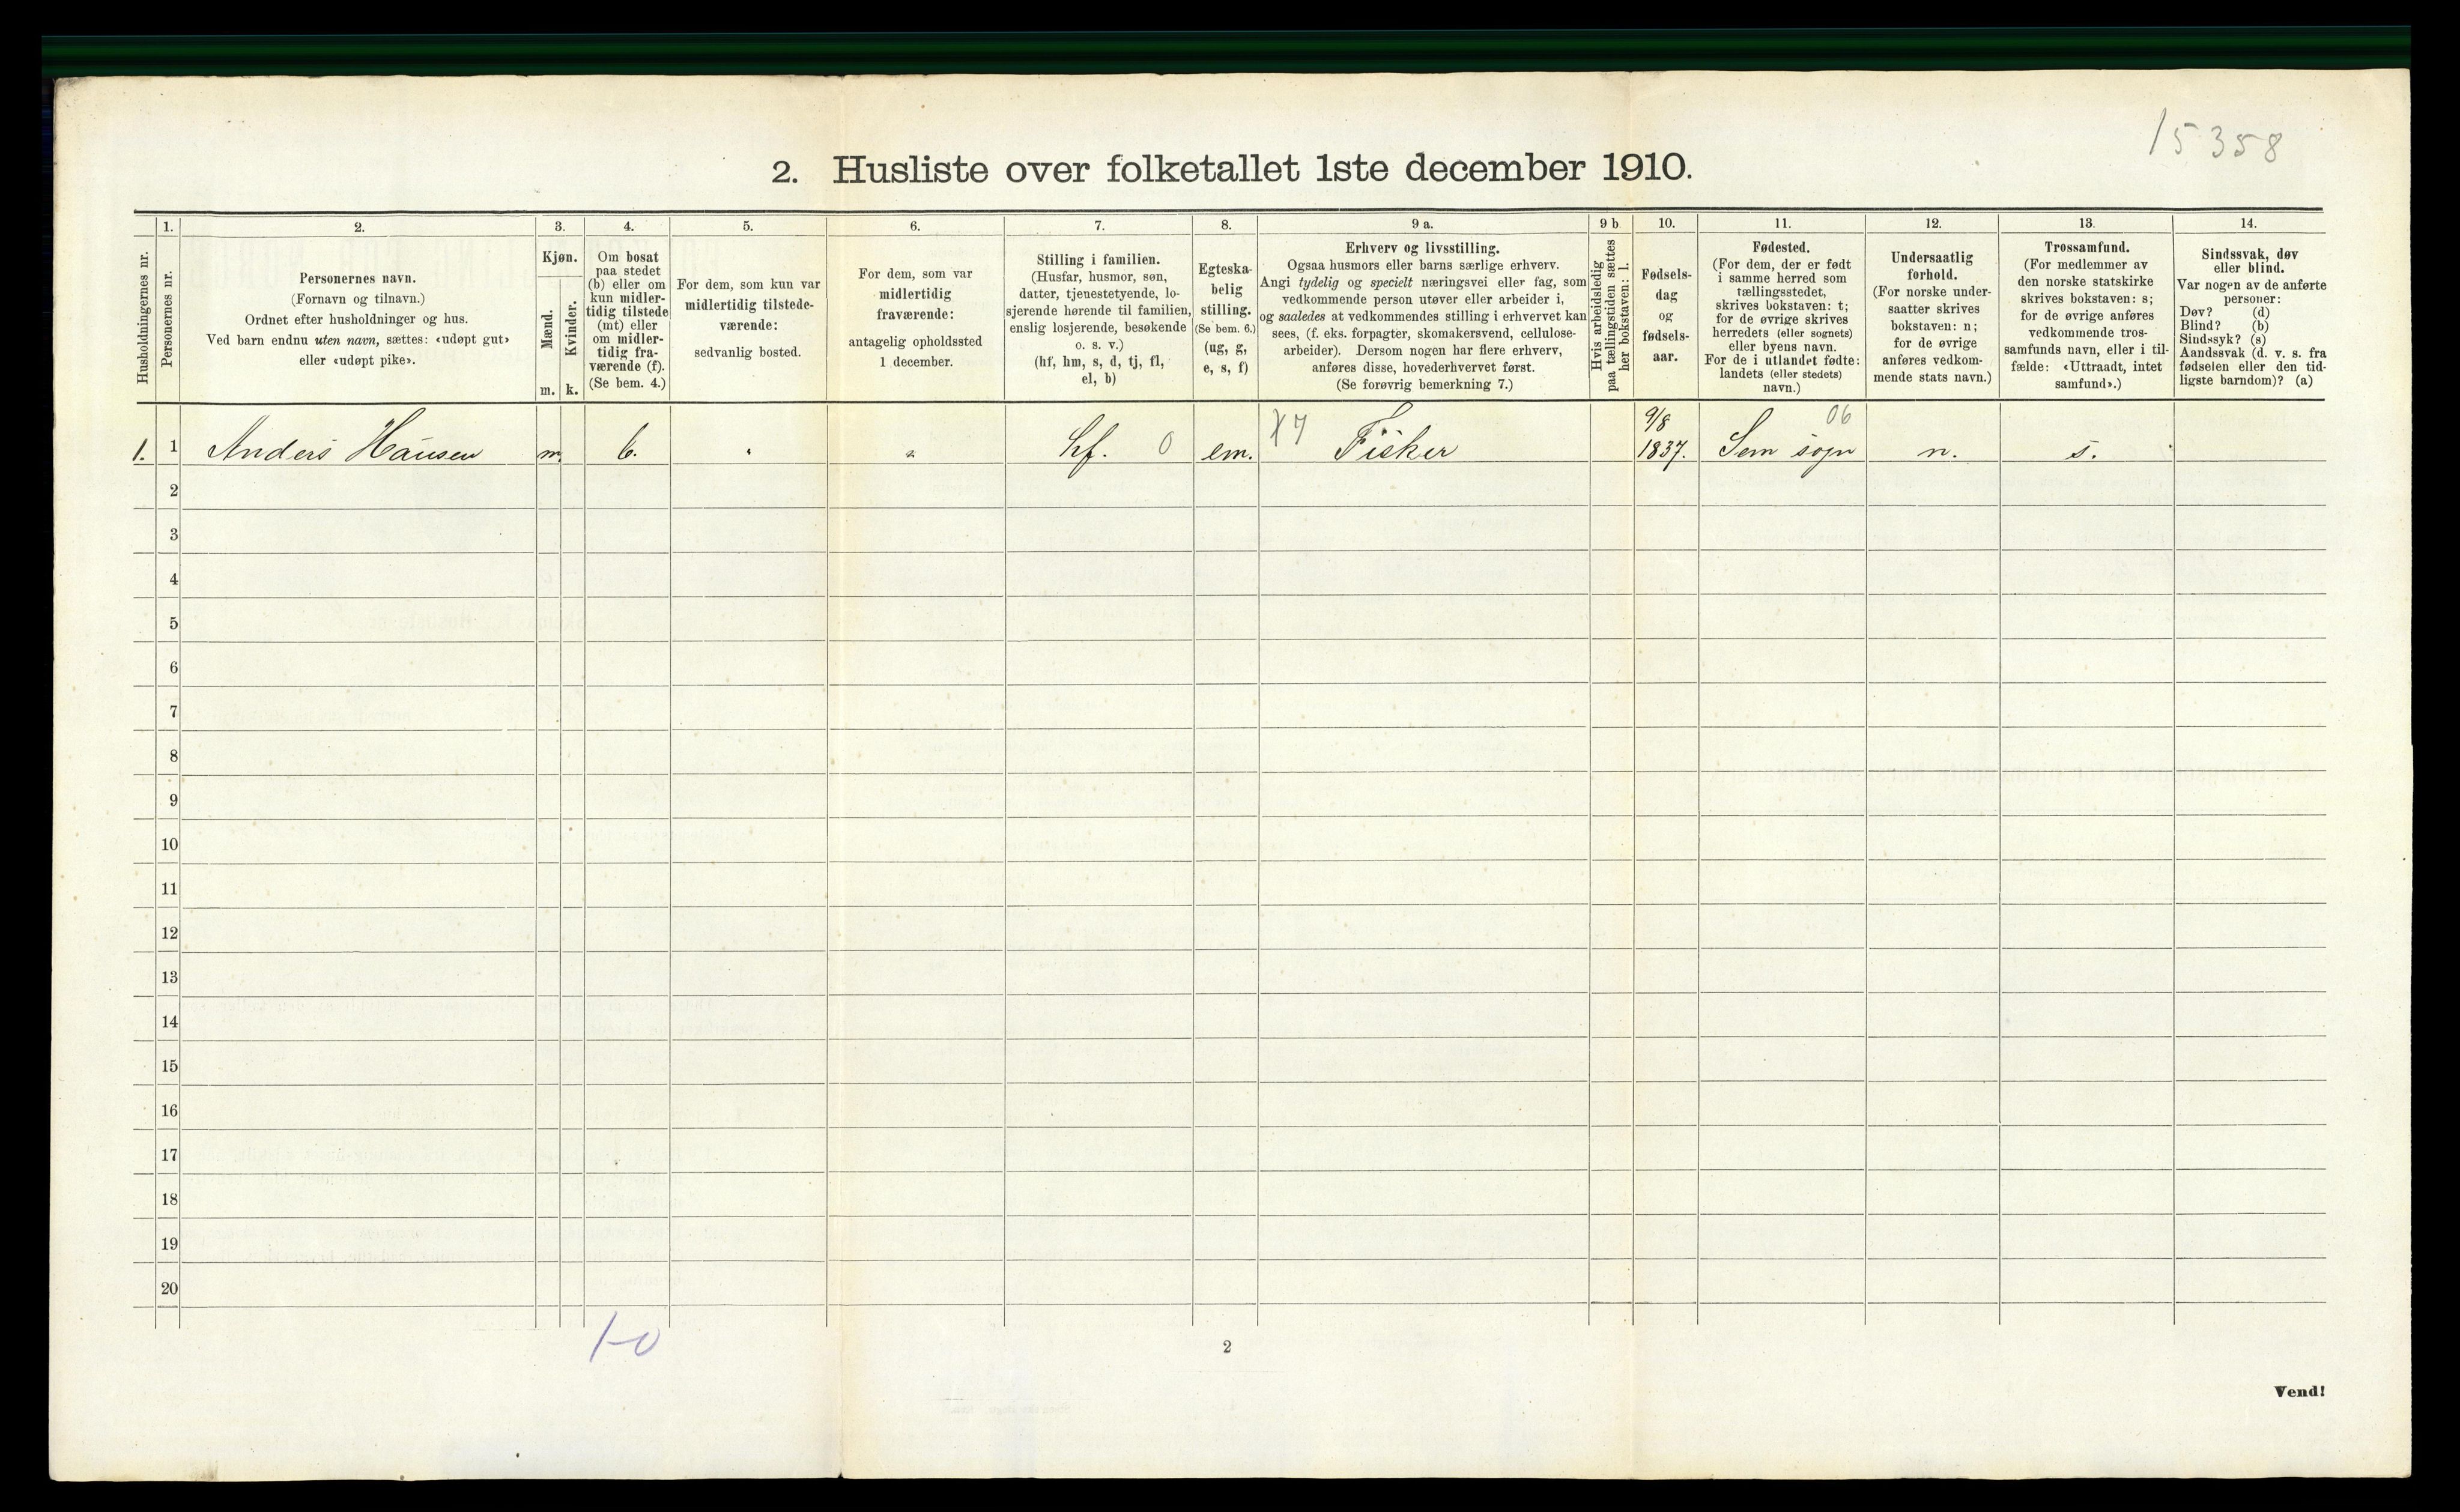 15358
2. Husliste over folketallet 1ste december 1910.
Husholdningernes nr.
1.
Personernes nr.
2.
Personernes navn.
(Fornavn og tilnavn.)
Ordnet efter husholdninger og hus.
Ved barn endnu uten navn, sættes: «udøpt gut»
eller «udøpt pike».
3.
Kjøn.
Mænd.
m.
Kvinder.
k.
4.
Om bosat
paa stedet
(b) eller om
kun midler-
tidig tilstede
(mt) eller
om midler-
tidig fra-
værende (f).
(Se bem. 4.)
5.
For dem, som kun var
midlertidig tilstede-
værende:
sedvanlig bosted.
6.
For dem, som var
midlertidig
fraværende:
antagelig opholdssted
1 december.
7.
Stilling i familien.
(Husfar, husmor, søn,
datter, tjenestetyende, lo-
sjerende hørende til familien,
enslig losjerende, besøkende
o. s. v.)
(hf, hm, s, d, tj, fl,
el, b)
8.
Egteska-
belig
stilling.
(Se bem. 6.)
(ug, g,
e, s, f)
9 a.
Erhverv og livsstilling.
Ogsaa husmors eller barns særlige erhverv.
Angi tydelig og specielt næringsvei eller fag, som
vedkommende person utøver eller arbeider i,
og saaledes at vedkommendes stilling i erhvervet kan
sees, (f. eks. forpagter, skomakersvend, cellulose-
arbeider). Dersom nogen har flere erhverv,
anføres disse, hovederhvervet først.
(Se forøvrig bemerkning 7.)
9 b
Hvis arbeidsledig
paa tællingstiden sættes
her bokstaven: l.
10.
Fødsels-
dag
og
fødsels-
aar.
11.
Fødested.
(For dem, der er født
i samme herred som
tællingsstedet,
skrives bokstaven: t;
for de øvrige skrives
herredets (eller sognets)
eller byens navn.
For de i utlandet fødte:
landets (eller stedets)
navn.)
12.
Undersaatlig
forhold.
(For norske under-
saatter skrives
bokstaven: n;
for de øvrige
anføres vedkom-
mende stats navn.)
13.
Trossamfund.
(For medlemmer av
den norske statskirke
skrives bokstaven: s;
for de øvrige anføres
vedkommende tros-
samfunds navn, eller i til-
fælde: «Uttraadt, intet
samfund».)
14.
Sindssvak, døv
eller blind.
Var nogen av de anførte
personer:
Døv? (d)
Blind? (b)
Sindssyk? (s)
Aandssvak (d. v. s. fra
fødselen eller den tid-
ligste barndom)? (a)
1. 1 Anders Hansen m. b. hf. 0 em. X7 Fisker 9/8 1837. Sem sogn 06 n. s.
2
3
4
5
6
7
8
9
10
11
12
13
14
15
16
17
18
19
20
1-0
2
Vend!